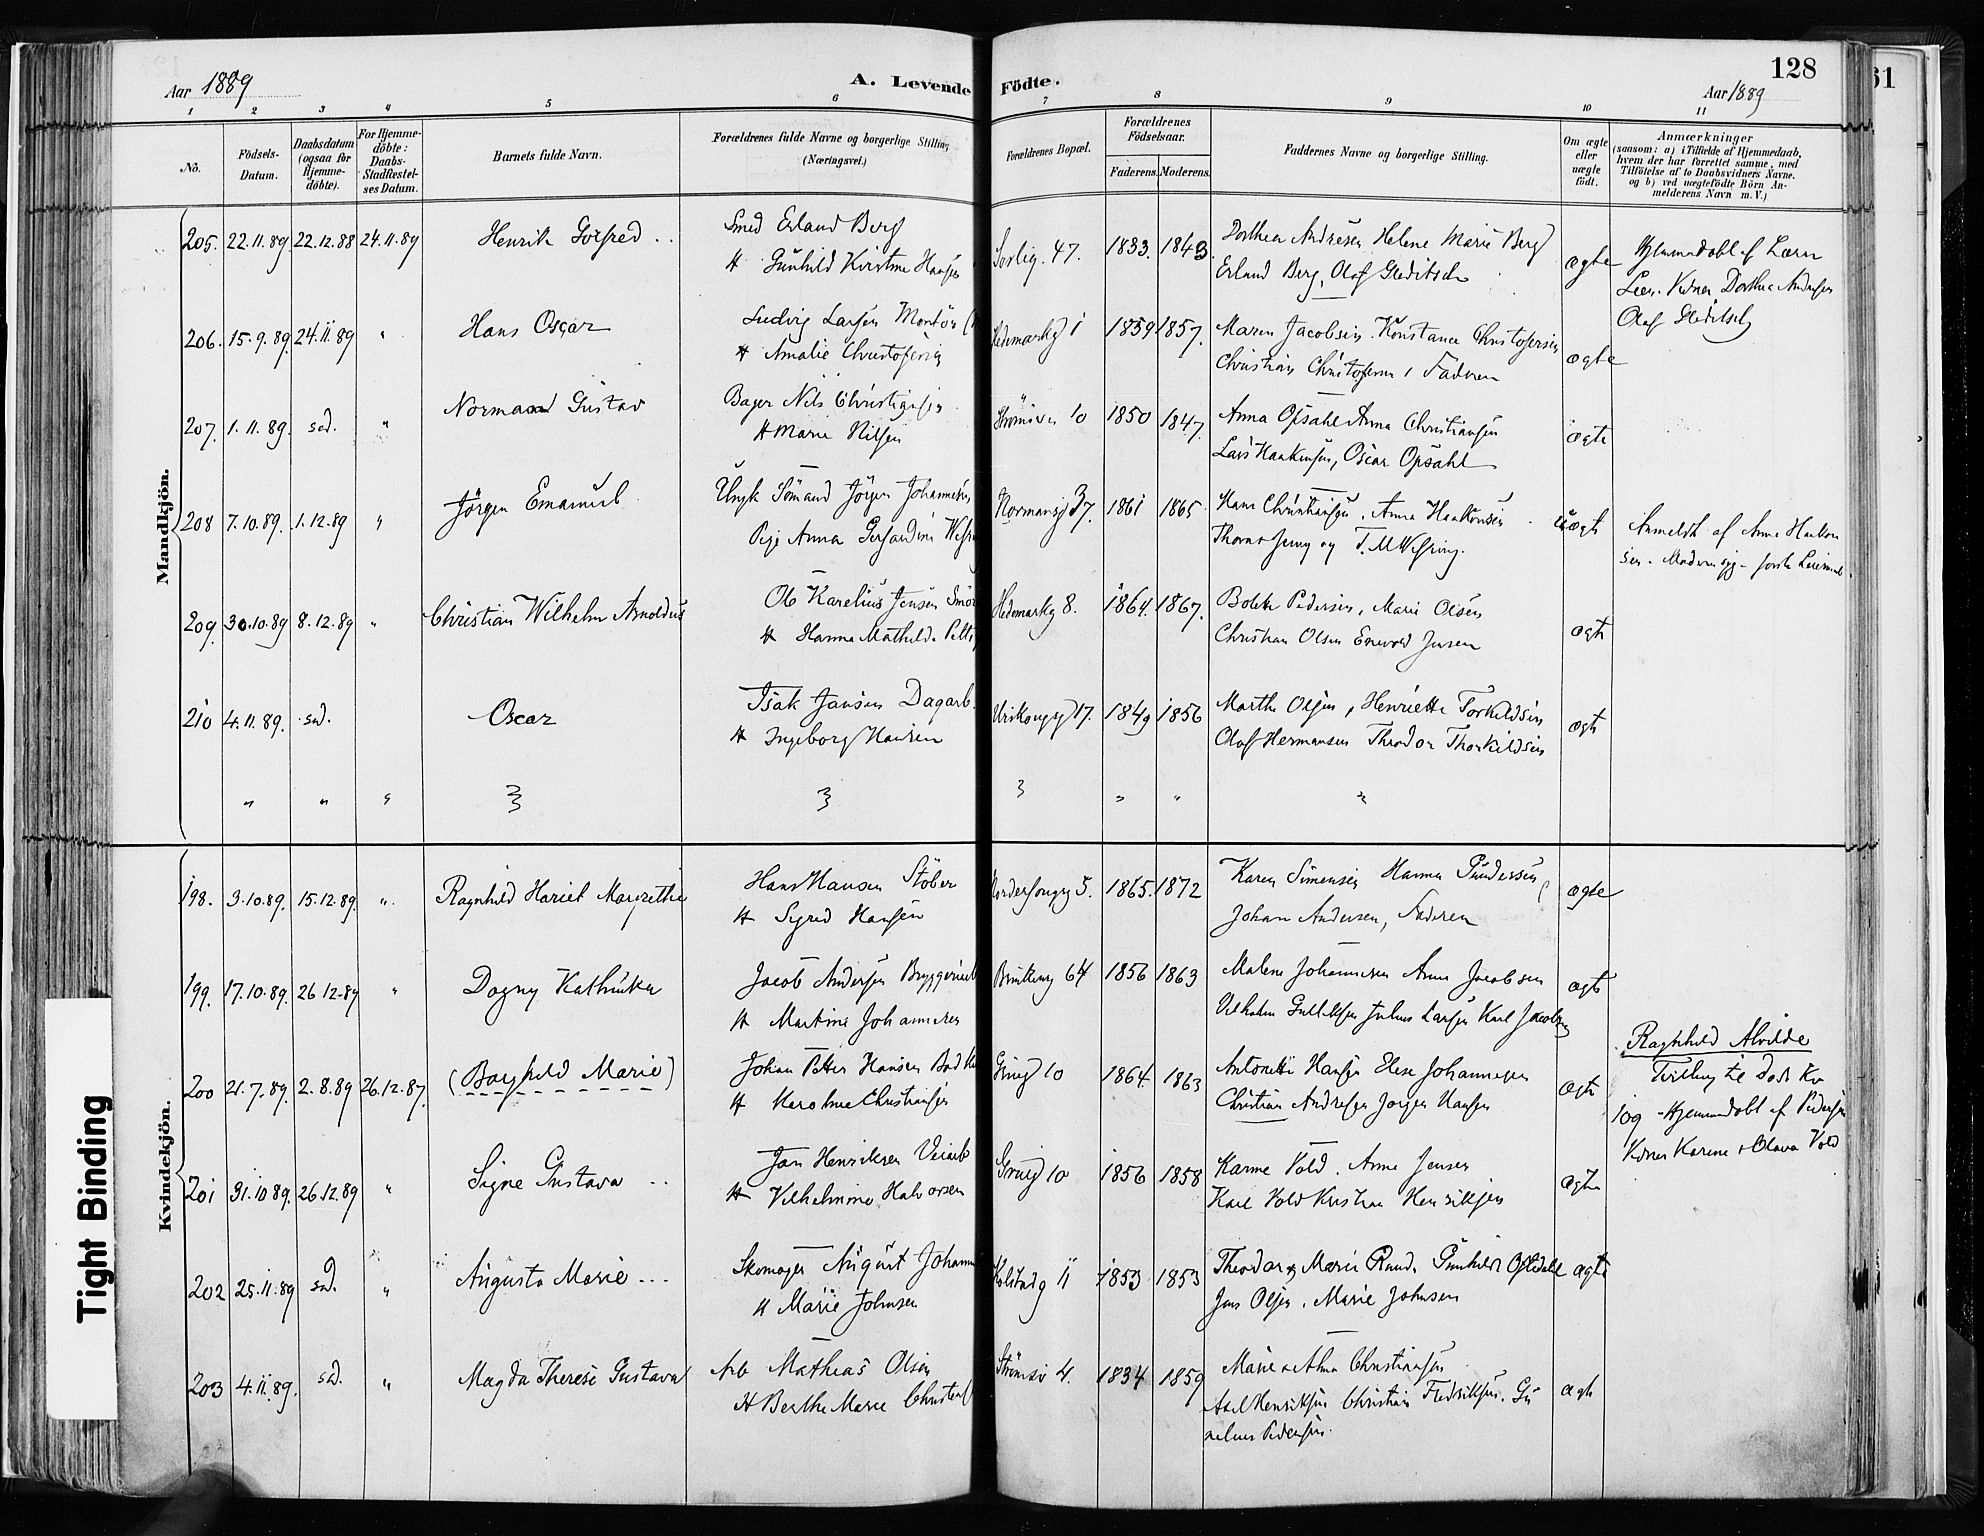 Aar 1889
A. Levende Födte.
128
Aar 1889
61
1 2 3 4 5 6 7 8 9 10 11
No.
Födsels-Datum.
Daabsdatum (ogsaa for Hjemme-döbte).
For Hjemme-döbte: Daabs-Stadfæstel-ses Datum.
Barnets fulde Navn.
Forældrenes fulde Navne og borgerlige Stilling (Næringsvei.)
Forældrenes Bopæl.
Forældrenes Födselsaar.
Faderens. Moderens.
Faddernes Navne og borgerlige Stilling.
Om ægte eller uægte födt.
Anmærkninger
(saasom: a) i Tilfælde af Hjemmedaab,
hvem der har forrettet samme, med
Tilföielse af to Daabsvidners Navne.
og b) ved uægtefödte Börn An-
melderens Navn m. V.)
Mandkjön.
205. 22.11.89. 22.12.88 24.11.89 Henrik Gotfred Smed Erland Berg 47. 1833. 1843. Dorthea Andresen Helene Marie Berg ægte Hjemmedøbt af
Gunhild Kirstine Hansen Erland Berg, Olaf Gleditsch Dorthea Andresen
Olaf Gleditsch
206. 15.9.89. 24.11.89 " Hans Oscar Ludvig Larsen Montör Hedemarkg 1 1859 1857. Maren Jacobsen. Konstance Christofersen ægte
Amalie Christofersen Christian Christofersen, Faderen
207. 1.11.89. sad. " Norman Gustav Bager Nils Christiansen Strömsv 10 1850 1847. Anna Opsahl Anna Christiansen ægte
Marie Nilsen Lars Haakensen, Oscar Opsahl
208 7.10.89. 1.12.89 " Jörgen Emanuel Ungk Sömand Jörgen Johannesen Normansg 37. 1861 1865 Hans Christiansen. Anna Haakonsen uægte Anmeldt af Anna Haakon
Pige Anna Gerhardine og T. M. sen - Moderen syg - første Leiermaal.
209. 30.10.89 8.12.89 " Christian Wilhelm Arnoldus Ole Karelius Jensen Hedemarkg 8. 1864. 1867. Bolette Pedersen, Marie Olsen ægte
Hanna Mathilde Christian Olsen Jensen
210 4.11.89. sad. Oscar Isak Jansen Dagarb. 17. 1849 1856 Marthe Olsen, Henriette Torkildsen ægte
Ingeborg Hansen Olaf Hermansen Theodor Thorkildsen
" " " " " " " " "
Kvindekjön.
198. 3.10.89. 15.12.89. " Ragnhild Hariet Margrethe Hans Hansen Stöber 5. 1865. 1872 Karen Simensen Hanna ægte
Sigrid Hansen Johan Andersen, Faderen
199. 17.10.89. 26.12.89 " Dagny Kathinka Jacob Andersen 64 1856 1863 Malene Johannesen Anne Jacobsen ægte
Martine Johannesen Vilhelm Gulliksen Julius Larsen Karl Jacobsen
200 21.7.89. 2.8.89 26.12.87. (Borghild Marie) Johan Petter Hansen Grüng 10 1864 1863 Antonette Hansen Elise Johannesen ægte Ragnhild Alvilde
Karoline Christiansen Christian Andresen Jorgen Hansen Tvilling til død Kv
109 - Hjemmedøbt af Pedersen
Karene & Olava Vold
201 31.10.89. 26.12.89 " Signe Gustava Jan Henriksen Veiarb Grüng 10 1856 1858 Karine Vold. Anne Jensen ægte
Vilhelmine Halvorsen Karl Vold Kristian Henriksen
202 25.11.89 sad. " Augusta Marie Skomager August Johann Kolstadg 11 1853 1853 Theodor & Marie Ruud. Gunhild ægte
Marie Johnsen Jens Olsen. Marie Johnsen
203 4.11.89. sad. " Magda Therese Gustava Arb Mathias Olsen Strömsv 4. 1834. 1859 Marie & Alma Christiansen ægte
Berthe Marie Axel Henriksen Christian Fredriksen.
Pedersen.
Tight Binding